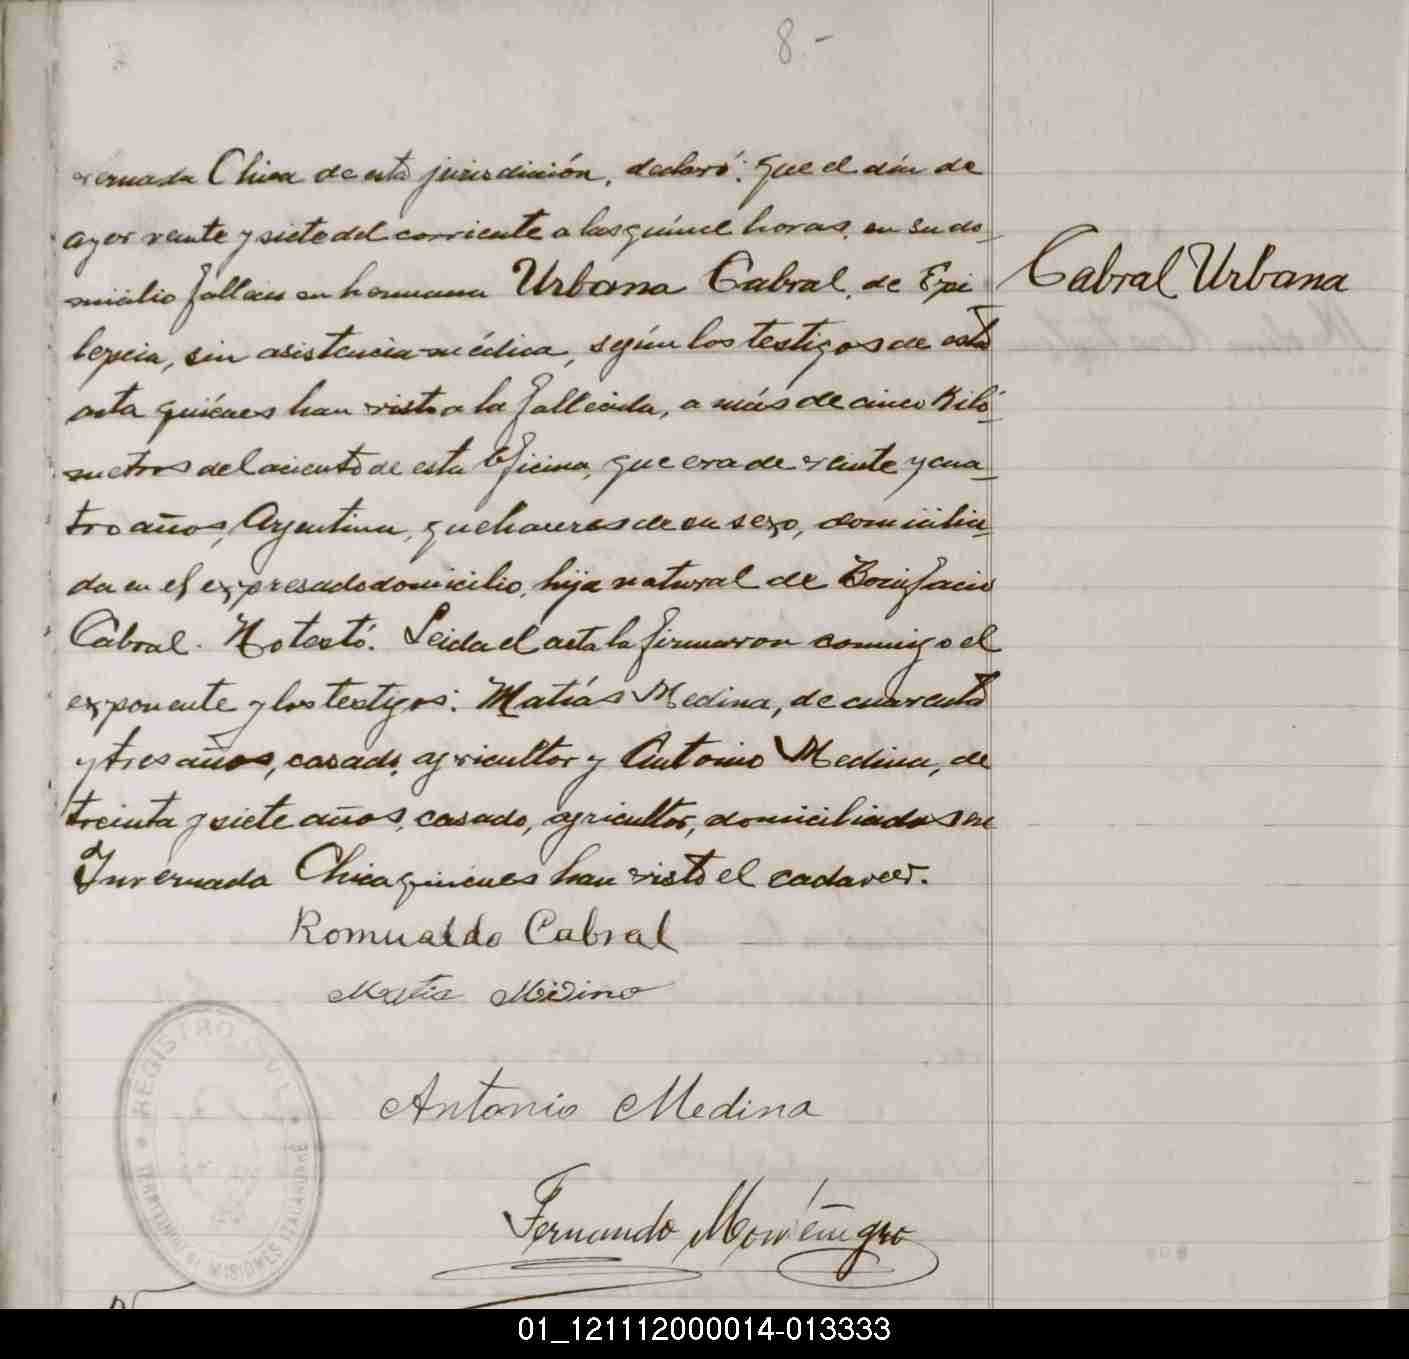 8.-
vernada Chica de esta jurisdicción, declaró: Que el día de
ayer veinte y siete del corriente a las quince horas, en su do_
micilio falleció su hermana Urbana Cabral, de Epi
Cabral Urbana
lepcia, sin asistencia médica, según los testigos de esta
acta quiénes han visto a la fallecida, a más de cinco Kiló_
metros del aciento de esta Oficina, que era de veinte y cua_
tro años, Argentina, quehaceres de su sexo, domicilia_
da en el expresado domicilio, hija natural de Bonifacio
Cabral. No testó. Leida el acta la firmaron comigo el
exponente y los testigos: Matías Medina, de cuarenta
y tres años, casado, agricultor y Antonio Medina, de
treinta y siete años, casado, agricultor, domiciliados en
Invernada Chica quienes han visto el cadaver.
Romualdo Cabral
Matia Medina
Antonio Medina
Fernando Montenegro
REGISTRO CIVIL
TERRITORIO DE MISIONES ITACARUARÉ
01_121112000014-013333